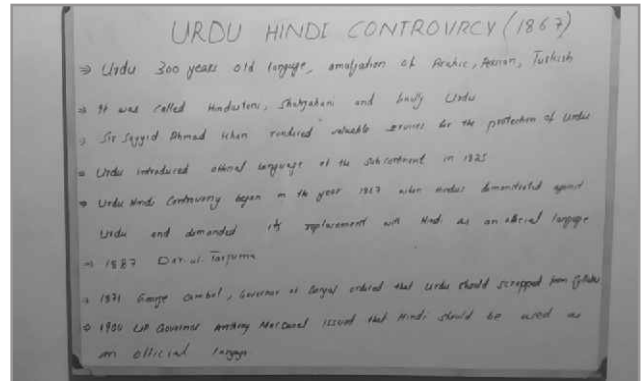 URDU HINDI CONTROVRCY (1867)
⇒ Urdu 300 years old language, amalgation of Arabic, Persian, Turkish
⇒ It was called Hindustani, Shahjahani and lastly Urdu
Sir Sayyid Ahmad Khan rendired valuable services for the protection of Urdu
⇒ Urdu introduced official language of the subcontinent in 1825
⇒ Urdu Hindi Controversy began in the year 1867 when Hindus demonstrated against
Urdu and demanded its replacement with Hindi as an official language
⇒ 1887 Dar-ul-Tarjuma
⇒ 1871 George Cambul, Governor of Bengal ordered that Urdu should scrapped from syllabus
⇒ 1900 UP Governor Anthony MacDonal issued that Hindi should be used as
an official language